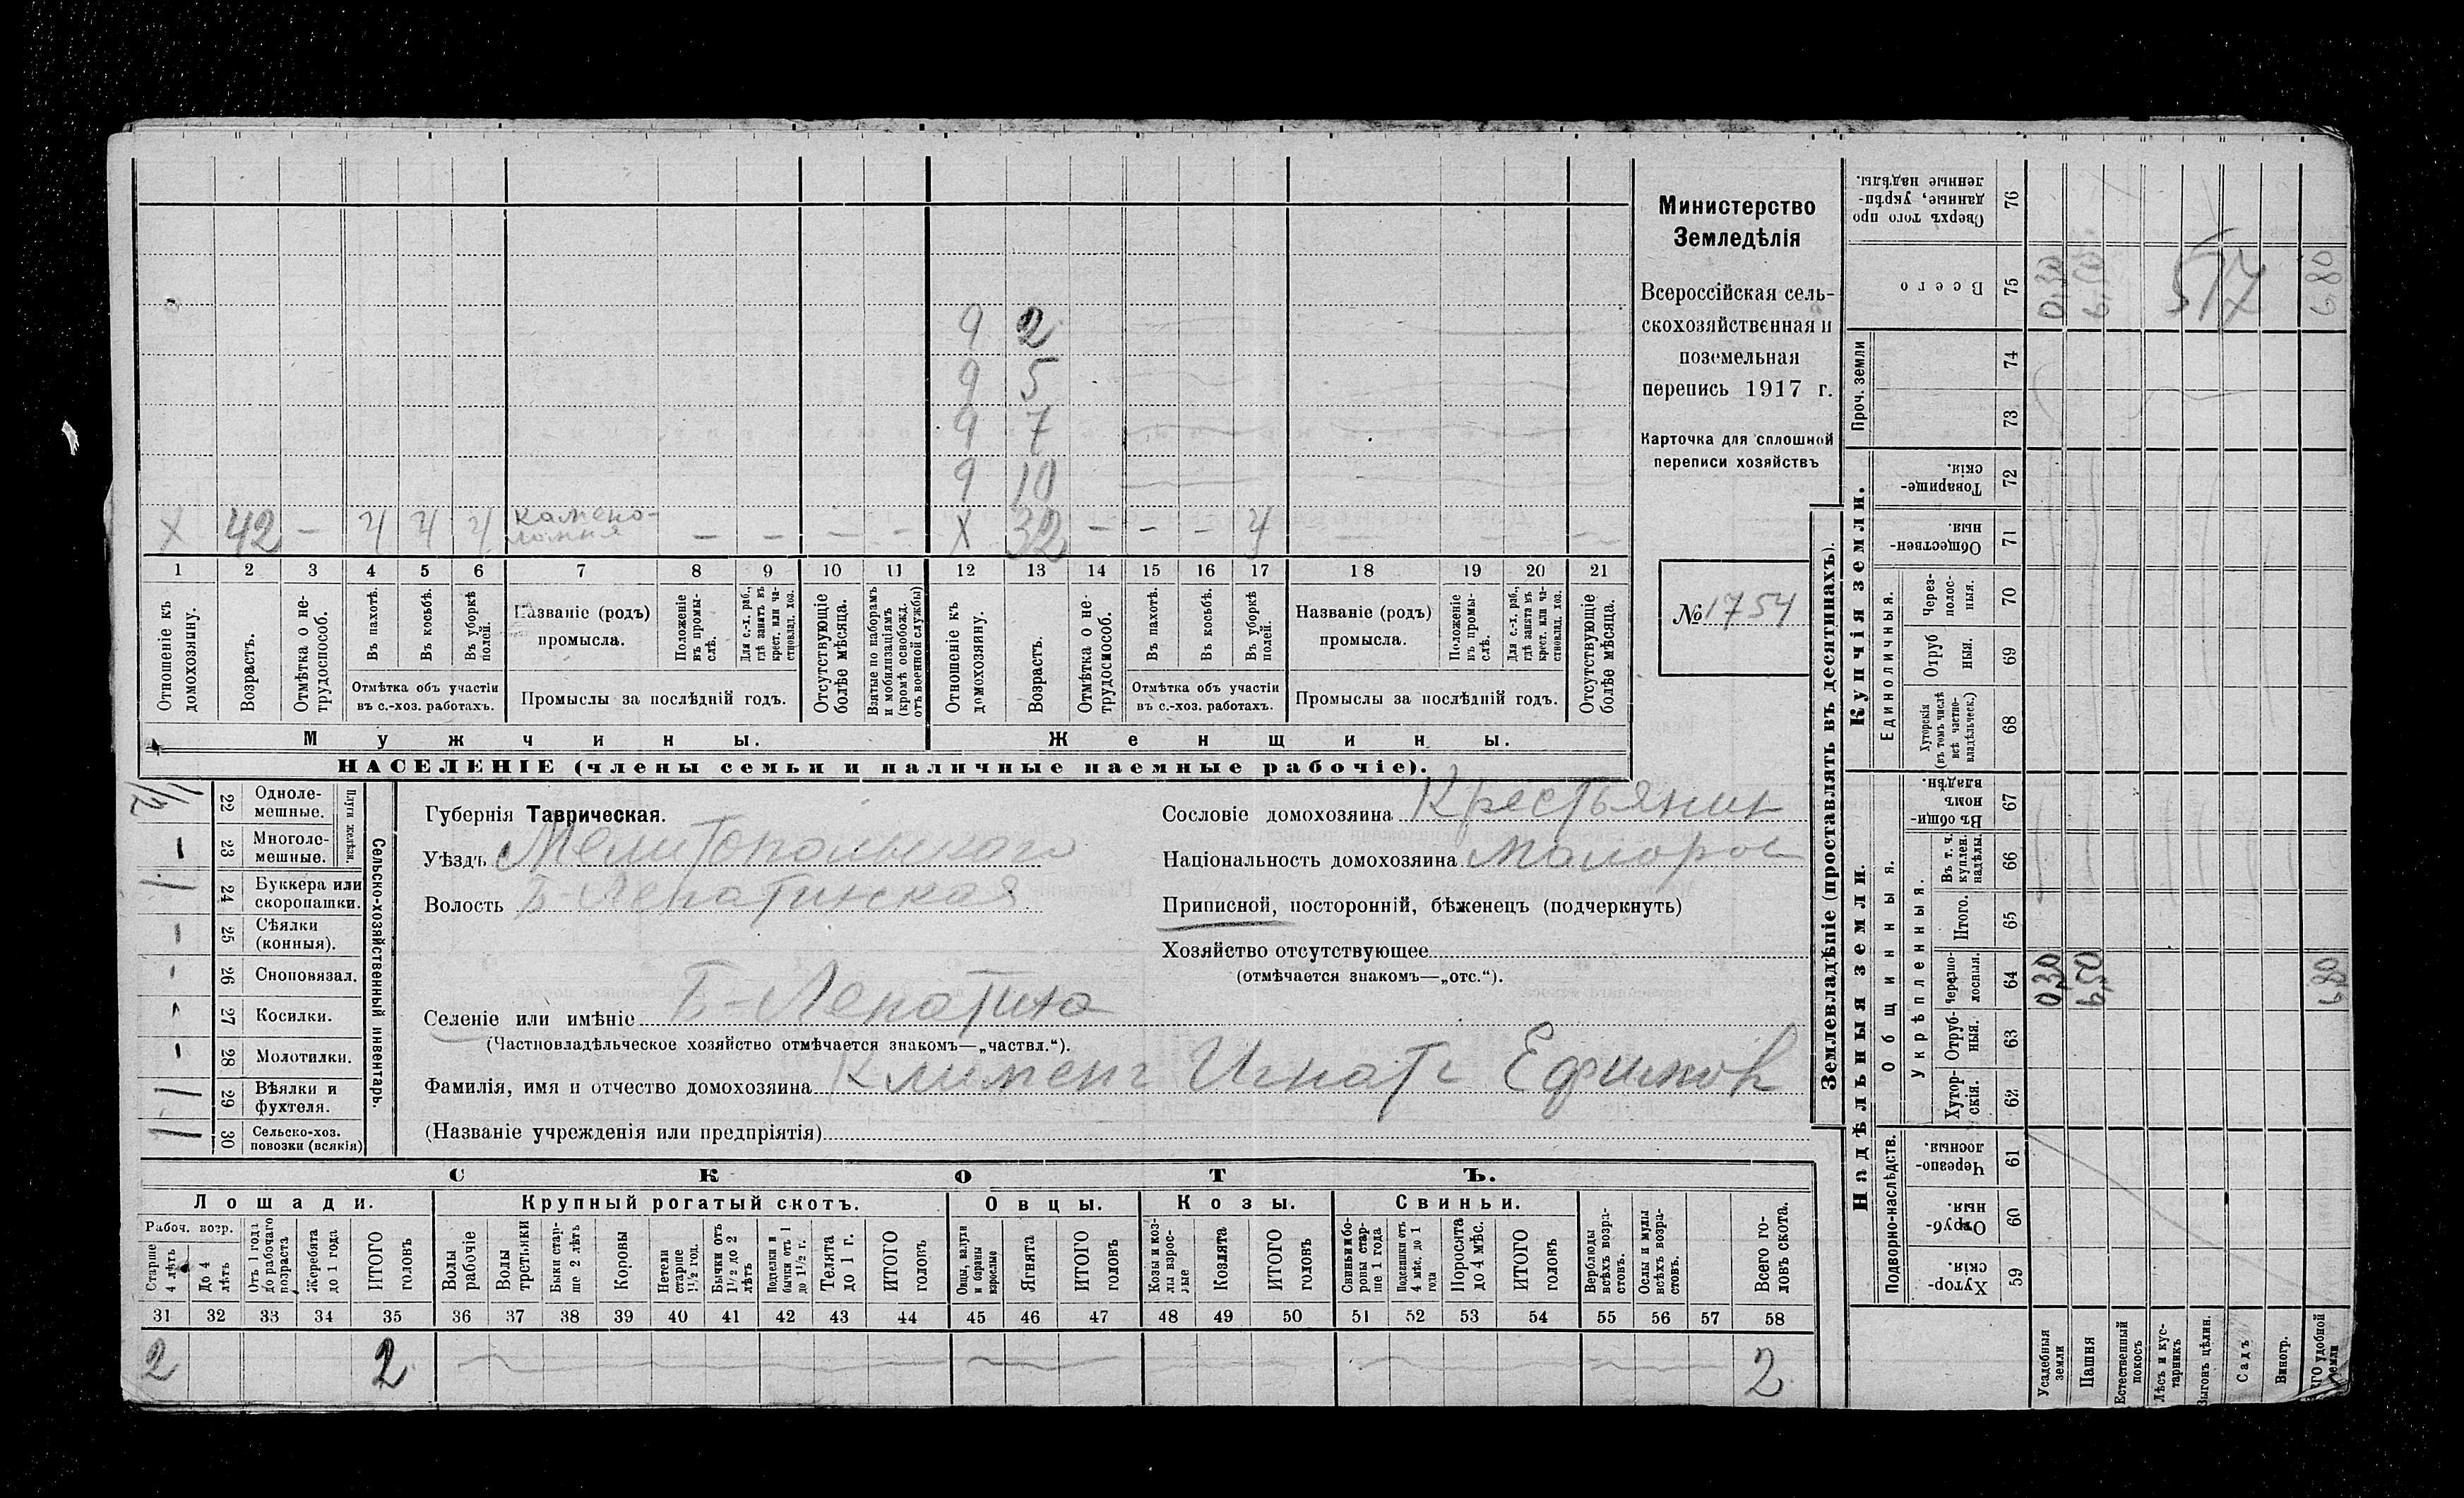 9 2
9 5
9 7
9 10
X 42 – ч ч ч камено-
ломня – – – – X 32 – – – ч – – – –
1 2 3 4 5 6 7 8 9 10 11 12 13 14 15 16 17 18 19 20 21
Отношеніе къ домохозяину.
Возрастъ.
Отмѣтка о не-трудоспособ.
Въ пахотѣ.
Въ косьбѣ.
Въ уборкѣ полей.
Отмѣтка объ участіи
въ с.-хоз. работахъ.
Названіе (родъ)
промысла.
Положеніе въ промы-слѣ.
Для с.-х. раб., гдѣ занятъ въ крест. или ча-стновлад. хоз.
Промыслы за послѣдній годъ.
Отсутствующіе болѣе мѣсяца.
Взятые по наборамъ и мобилизаціямъ (кромѣ освобожд. отъ военной службы)
Отношеніе къ домохозяину.
Возрастъ.
Отмѣтка о не-трудоспособ.
Въ пахотѣ.
Въ косьбѣ.
Въ уборкѣ полей.
Отмѣтка объ участіи
въ с.-хоз. работахъ.
Названіе (родъ)
промысла.
Положеніе въ промы-слѣ.
Для с.-х. раб., гдѣ занятъ въ крест. или ча-стновлад. хоз.
Промыслы за послѣдній годъ.
Отсутствующіе болѣе мѣсяца.
Мужчины.
Женщины.
НАСЕЛЕНІЕ (члены семьи и наличные наемные рабочіе).
Министерство
Земледѣлія
Всероссійская сель-
скохозяйственная и
поземельная
перепись 1917 г.
Карточка для сплошной
переписи хозяйствъ
№ 1754
1/2 22 Одноле-мешные.
– 23 Многоле-мешные.
Плуги желѣзн.
1 24 Буккера или скоропашки.
– 25 Сѣялки (конныя).
– 26 Сноповязал.
– 27 Косилки.
– 28 Молотилки.
1 29 Вѣялки и фухтеля.
1 30 Сельско-хоз. повозки (всякія)
Сельско-хозяйственный инвентарь.
Губернія Таврическая.
Уѣздъ Мелитопольского
Волость Б-Лепатинская
Селеніе или имѣніе Б-Лепатиха
(Частновладѣльческое хозяйство отмѣчается знакомъ—„частвл.“).
Фамилія, имя и отчество домохозяина Клименъ Игнатъ Ефимов
(Названіе учрежденія или предпріятія)
Сословіе домохозяина Крестьянин
Національность домохозяина малорос
Приписной, посторонній, бѣженецъ (подчеркнуть)
Хозяйство отсутствующее
(отмѣчается знакомъ—„отс.“).
СКОТЪ.
Лошади. Крупный рогатый скотъ. Овцы. Козы. Свиньи.
Рабоч. возр.
Старше 4 лѣтъ
До 4 лѣтъ
Отъ 1 года до рабочаго возраста
Жеребята до 1 года
ИТОГО головъ
Волы рабочіе
Волы третьяки
Быки стар-ше 2 лѣтъ
Коровы
Нетели старше 1½ год.
Бычки отъ 1½ до 2 лѣтъ
Подтелки и бычки отъ 1 до 1½ г.
Телята до 1 г.
ИТОГО головъ
Овцы, валухи и бараны взрослые
Ягнята
ИТОГО головъ
Козы и коз-лы взрос-лые
Козлята
ИТОГО головъ
Свиньи и бо-ровы стар-ше 1 года
Подсвинки отъ 4 мѣс. до 1 года
Поросята до 4 мѣс.
ИТОГО головъ
Верблюды всѣхъ возра-стовъ.
Ослы и мулы всѣхъ возра-стовъ.
Всего го-ловъ скота.
31 32 33 34 35 36 37 38 39 40 41 42 43 44 45 46 47 48 49 50 51 52 53 54 55 56 57 58
2 2 2
Землевладѣніе (проставлять въ десятинахъ).
Надѣльныя земли. Купчія земли.
Подворно-наслѣдств.
Общинныя.
Укрѣпленныя.
Единоличныя.
Проч. земли
Хутор-скія. 59
Отруб-ныя. 60
Черезпо-лосныя. 61
Хутор-скія. 62
Отруб-ныя. 63
Черезпо-лосныя. 64 0,30 6,50 6,80
Итого. 65
Въ т. ч. куплен. надѣлы. 66
Въ общи-номъ владѣн. 67
Хуторскія (въ томъ числѣ всѣ частно-владѣльческ.) 68
Отруб ныя. 69
Через-полос-ныя. 70
Обществен-ныя. 71
Товарище-скія. 72
73
74
Всего 75 0,30 6,50 517 6,80
Сверхъ того про данные, укрѣп-ленные надѣлы. 76
Усадебныя земли
Пашня
Естественный покосъ
Лѣсъ и кус-тарникъ
Выгонъ цѣлин.
Садъ
Виногр.
удобной земли